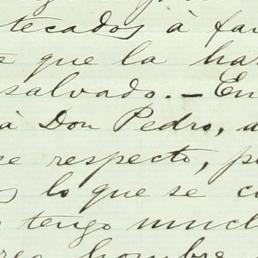 tecados à fa
e que la ha
salvado. – En
à Don Pedro, a
se respecto, p
s lo que se c
tengo much
hombre